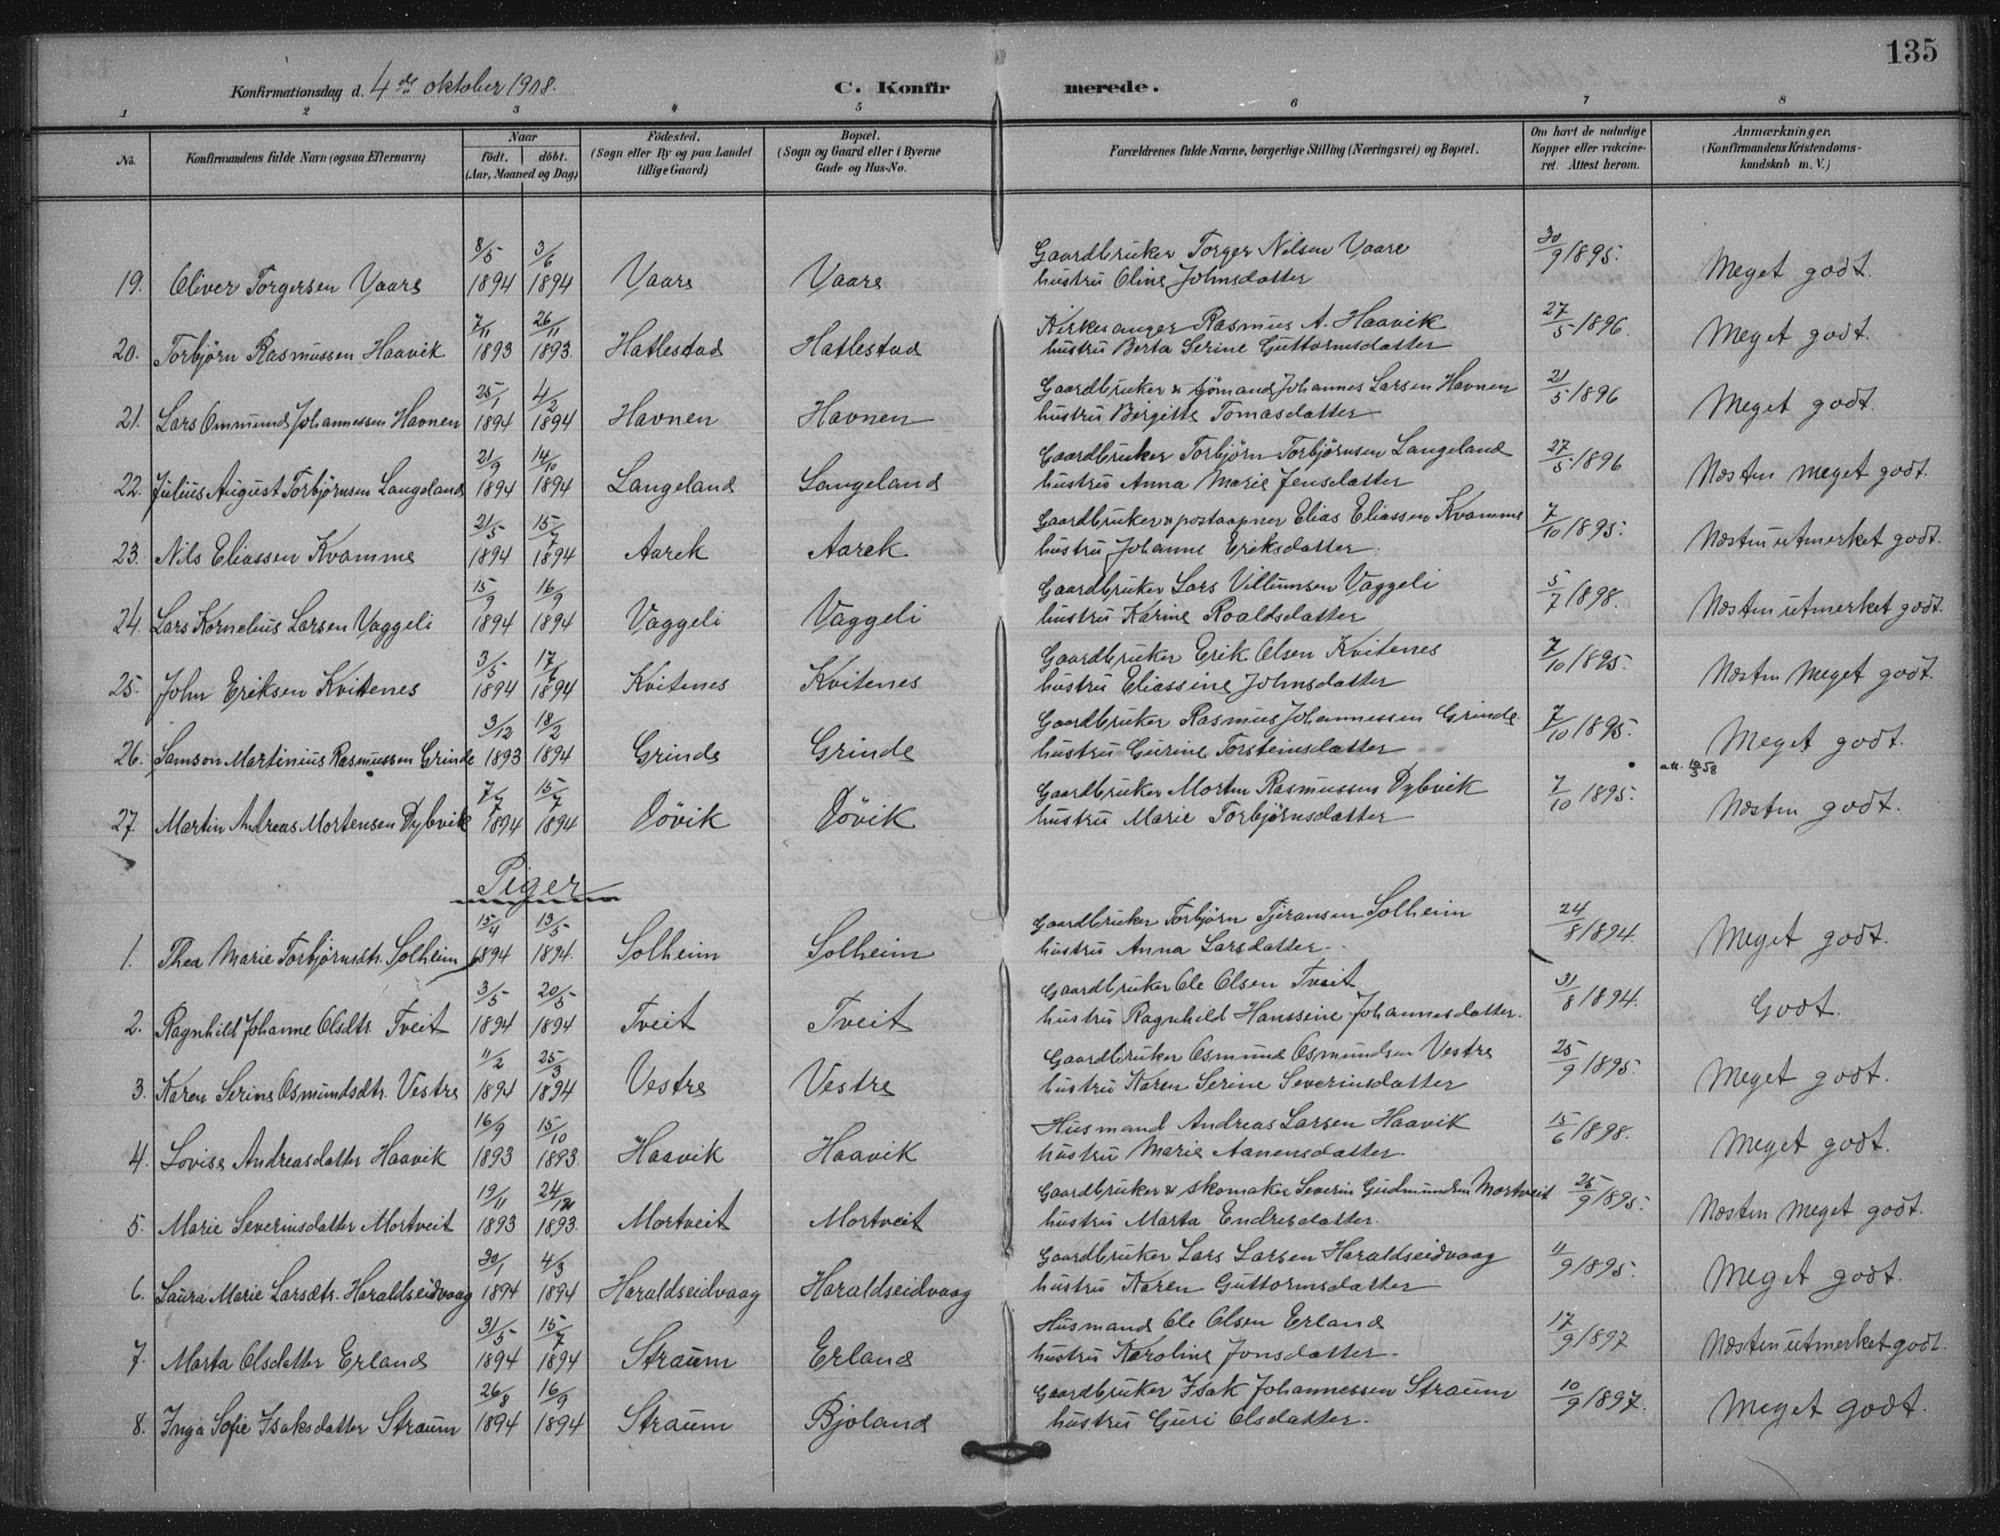 135
Konfirmationsdag d. 4de oktober 1908. C. Konfir merede.
1 2 3 4 5 6 7 8
No. Konfirmandens fulde Navn (ogsaa Efternavn) Naar födt. döbt. (Aar, Maaned og Dag) Födested. (Sogn eller By og paa Landet tillige Gaard) Bopæl. (Sogn og Gaard eller i Byerne Gade og Hus-No. Forældrenes fulde Navne, borgerlige Stilling (Næringsvei) og Bopæl. Om havt de naturlige Kopper eller vakcineret. Attest herom. Anmærkninger. (Konfirmandens Kristendomskundskab m. V.)
8/5 3/6 Gaardbruker Torger Nilsen Vaare 30/9 1895.
19. Oliver Torgersen Vaare 1894 1894 Vaare Vaare hustru Oline Johnsdatter Meget godt.
7/11 26/11 Kirkesanger Rasmus A. Haavik 27/5 1896.
20. Torbjörn Rasmussen Haavik 1893 1893. Hatlestad Hatlestad hustru Berta Serine Guttormsdatter Meget godt.
25/1 4/2 Gaardbruker & sjømand Johannes Larsen Havnen 21/5 1896
21. Lars Ommund Johannessen Havnen 1894 1894 Havnen Havnen hustru Bergitte Tomasdatter Meget godt.
21/9 14/10 Gaardbruker Torbjörn Torbjørnsen Langeland 27/5 1896
22. Julius August Torbjørnsen Langeland 1894 1894 Langeland Langeland hustru Anna Marie Jensdatter Næsten meget godt.
21/5 15/7 Gaardbruker & postaapner Elias Eliassen Kvamme 7/10 1895.
23. Nils Eliassen Kvamme 1894 1894 Aarek Aarek hustru Johanne Eriksdatter. Næsten utmerket godt.
15/9 16/9 Gaardbruker Lars Villumsen Vaggeli 5/7 1898.
24. Lars Kornelius Larsen Vaggeli 1894 1894 Vaggeli Vaggeli hustru Karine Roaldsdatter Næsten utmerket godt.
3/5 17/ Gaardbruker Erik Olsen Kvitenes 7/10 1895.
25. John Eriksen Kvitenes 1894 1894 Kvitenes Kvitenes hustru Eliassine Johnsdatter Næsten meget godt.
3/12 18/2 Gaardbruker Rasmus Johannessen Grinde 7/10 1895.
26. Samson Martinius Rasmussen Grinde 1893 1894 Grinde Grinde hustru Gurine Torsteinsdatter Meget godt.
att. 10/3 58
7/7 15/7 Gaardbruker Morten Rasmussen Dybvik 7/10 1895.
27. Martin Andreas Mortensen Dybvik 1894 1894 Døvik Døvik hustru Marie Torbjørnsdatter Næsten godt.
Piger
15/4 13/5 Gaardbruker Torbjörn Tjeransen Solheim 24/8 1894.
1. Thea Marie Torbjørnsdtr. Solheim 1894 1894. Solheim Solheim hustru Anna Larsdatter. Meget godt.
3/5 20/5 Gaardbruker Ole Olsen Tveit 31/8 1894.
2. Ragnhild Johanne Olsdtr. Tveit 1894 1894 Tveit Tveit hustru Ragnhild Hanssine Johannesdatter. Godt.
11/2 25/3 Gaardbruker Osmund Osmundsen Vestre 25/9 1895.
3. Karen Serine Osmundsdtr. Vestre 1894 1894 Vestre Vestre hustru Karen Serine Severinsdatter Meget godt.
16/9 15/10 Husmand Andreas Larsen Haavik 15/6 1898.
4. Lovise Andreasdatter Haavik 1893 1893. Haavik Haavik hustru Marie Aanensdatter. Meget godt.
19/11 24/12 Gaardbruker & skomaker Severin Gudmundsen Mortveit 25/9 1895.
5. Marie Severinsdatter Mortveit 1893 1893. Mortveit Mortveit hustru Marta Endresdatter. Næsten meget godt.
30/1 4/3 Gaardbruker Lars Larsen Haraldseidvaag 11/9 1895.
6. Laura Marie Larsdtr. Haraldseidvaag 1894 1894 Haraldseidvaag Haraldseidvaag hustru Karen Guttormsdatter Meget godt.
31/5 15/7 Husmand Ole Olsen Erland 17/9 1897
7. Marta Olsdatter Erland 1894 1894 Straum Erland hustru Karoline Jonsdatter. Næsten utmerket godt.
26/8 16/9 Gaardbruker Isak Johannessen Straum 10/9 1897.
8. Inga Sofie Isaksdatter Straum 1894 1894 Straum Bjoland hustru Guri Olsdatter. Meget godt.